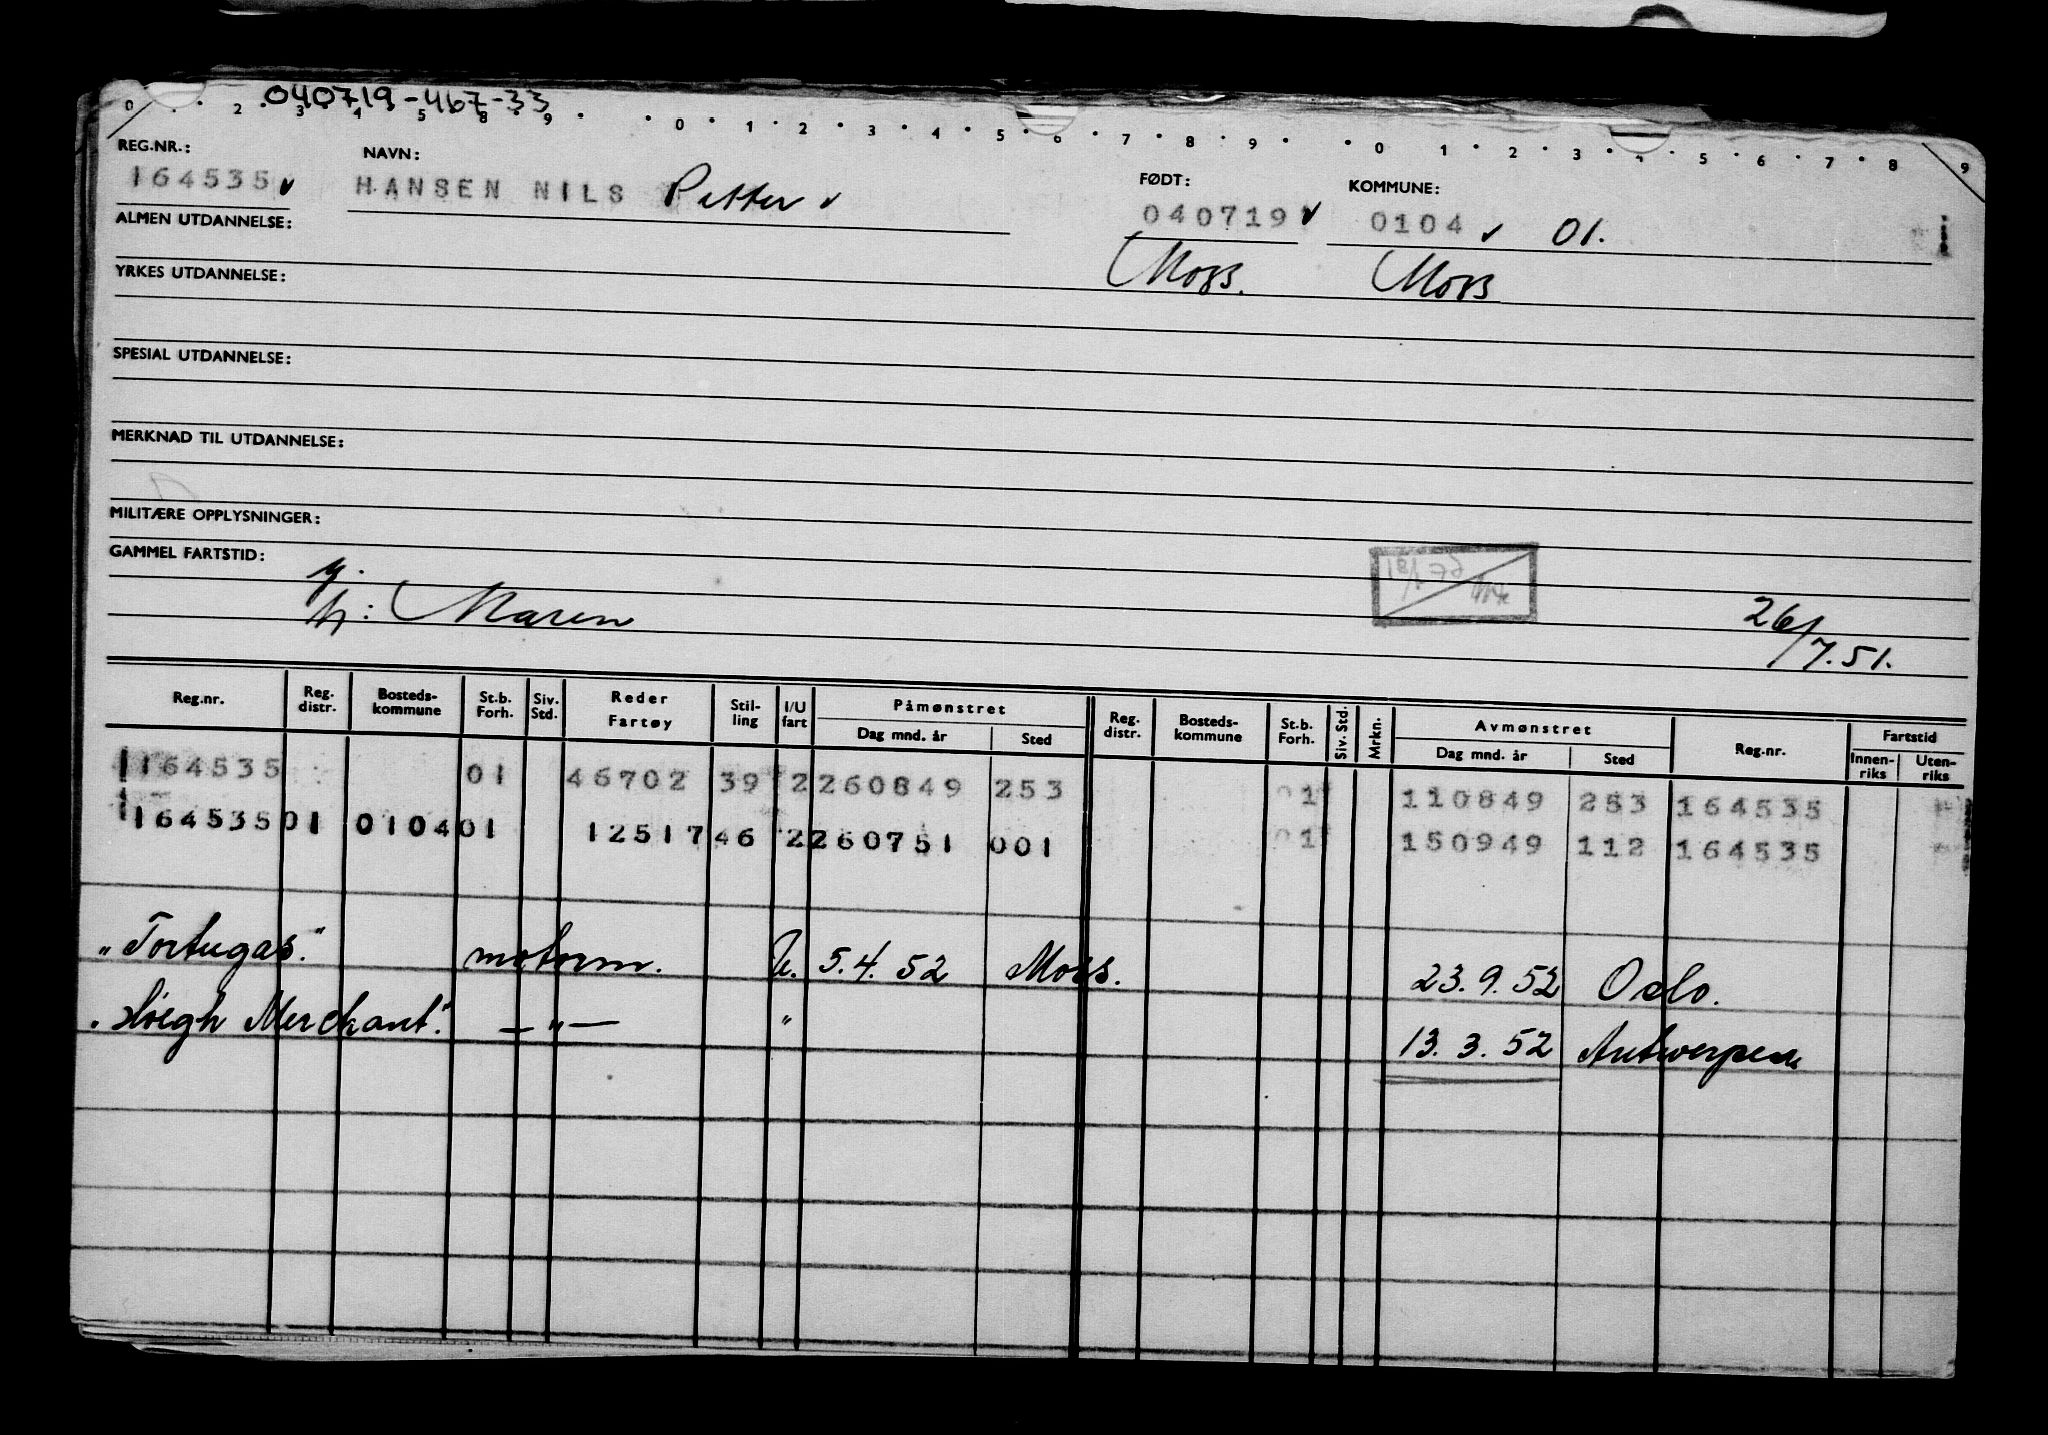 040719-467-33
0 2 3 4 5 8 9 0 1 2 3 4 5 6 7 8 9 0 1 2 3 4 5 6 7 8 9
REG.NR.: NAVN: FØDT: KOMMUNE:
164535 HANSEN NILS Petter 040719 0104 01.
ALMEN UTDANNELSE:
Moss. Moss
YRKES UTDANNELSE:
SPESIAL UTDANNELSE:
MERKNAD TIL UTDANNELSE:
MILITÆRE OPPLYSNINGER:
GAMMEL FARTSTID:
g.
h: Maren 26/7.51.
Reg.nr. Reg. distr. Bosteds- kommune St.b. Forh. Siv. Std. Reder Fartøy Stil- ling I/U fart Påmønstret Dag mnd. år Sted Reg. distr. Bosteds- kommune St.b. Forh. Siv. Std. Mrkn. Avmønstret Dag mnd. år Sted Reg.nr. Fartstid Innen- riks Uten- riks
164535 01 46702 39 2 260849 253 01 110849 253 164535
164535 01 0104 01 12517 46 2 260751 001 01 150949 112 164535
"Tortugas." motorm. U. 5.4.52 Moss. 23.9.52 Oslo.
"Høegh Merchant". —"— " 13.3.52 Antwerpen